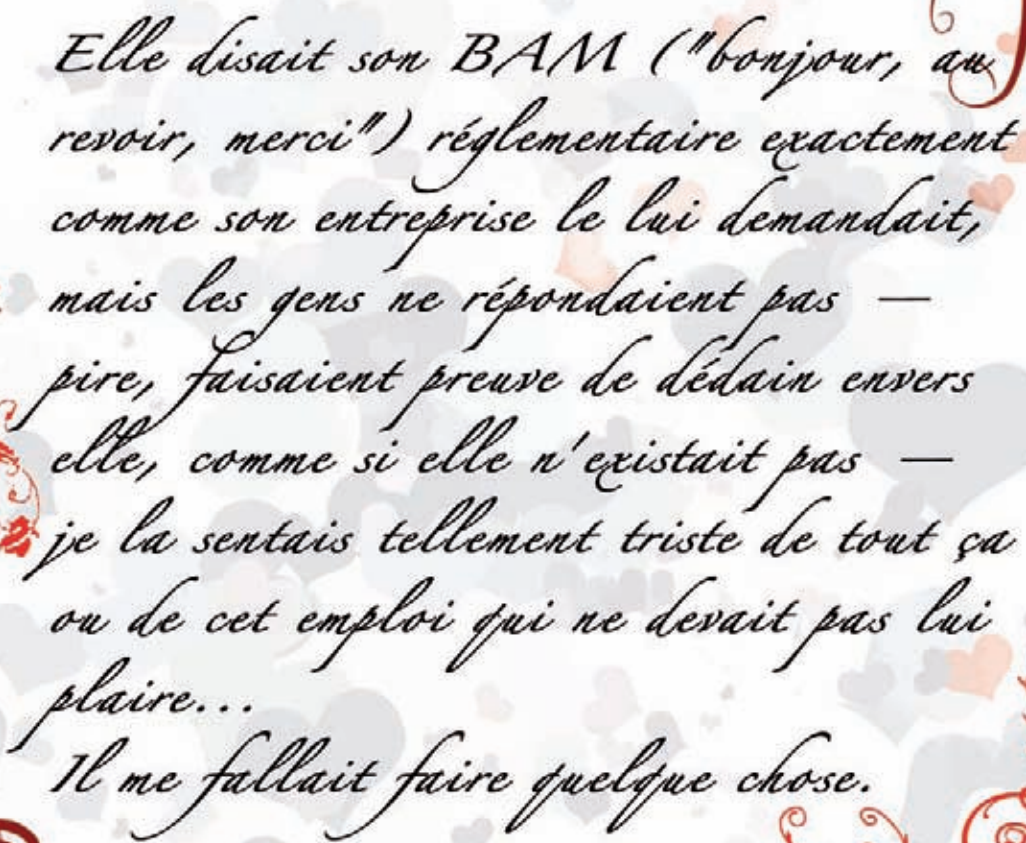 Elle disait son BAM ("bonjour, au
revoir, merci") réglementaire exactement
comme son entreprise le lui demandait,
mais les gens ne répondaient pas —
pire, faisaient preuve de dédain envers
elle, comme si elle n'existait pas —
je la sentais tellement triste de tout ça
ou de cet emploi qui ne devait pas lui
plaire...
Il me fallait faire quelque chose.